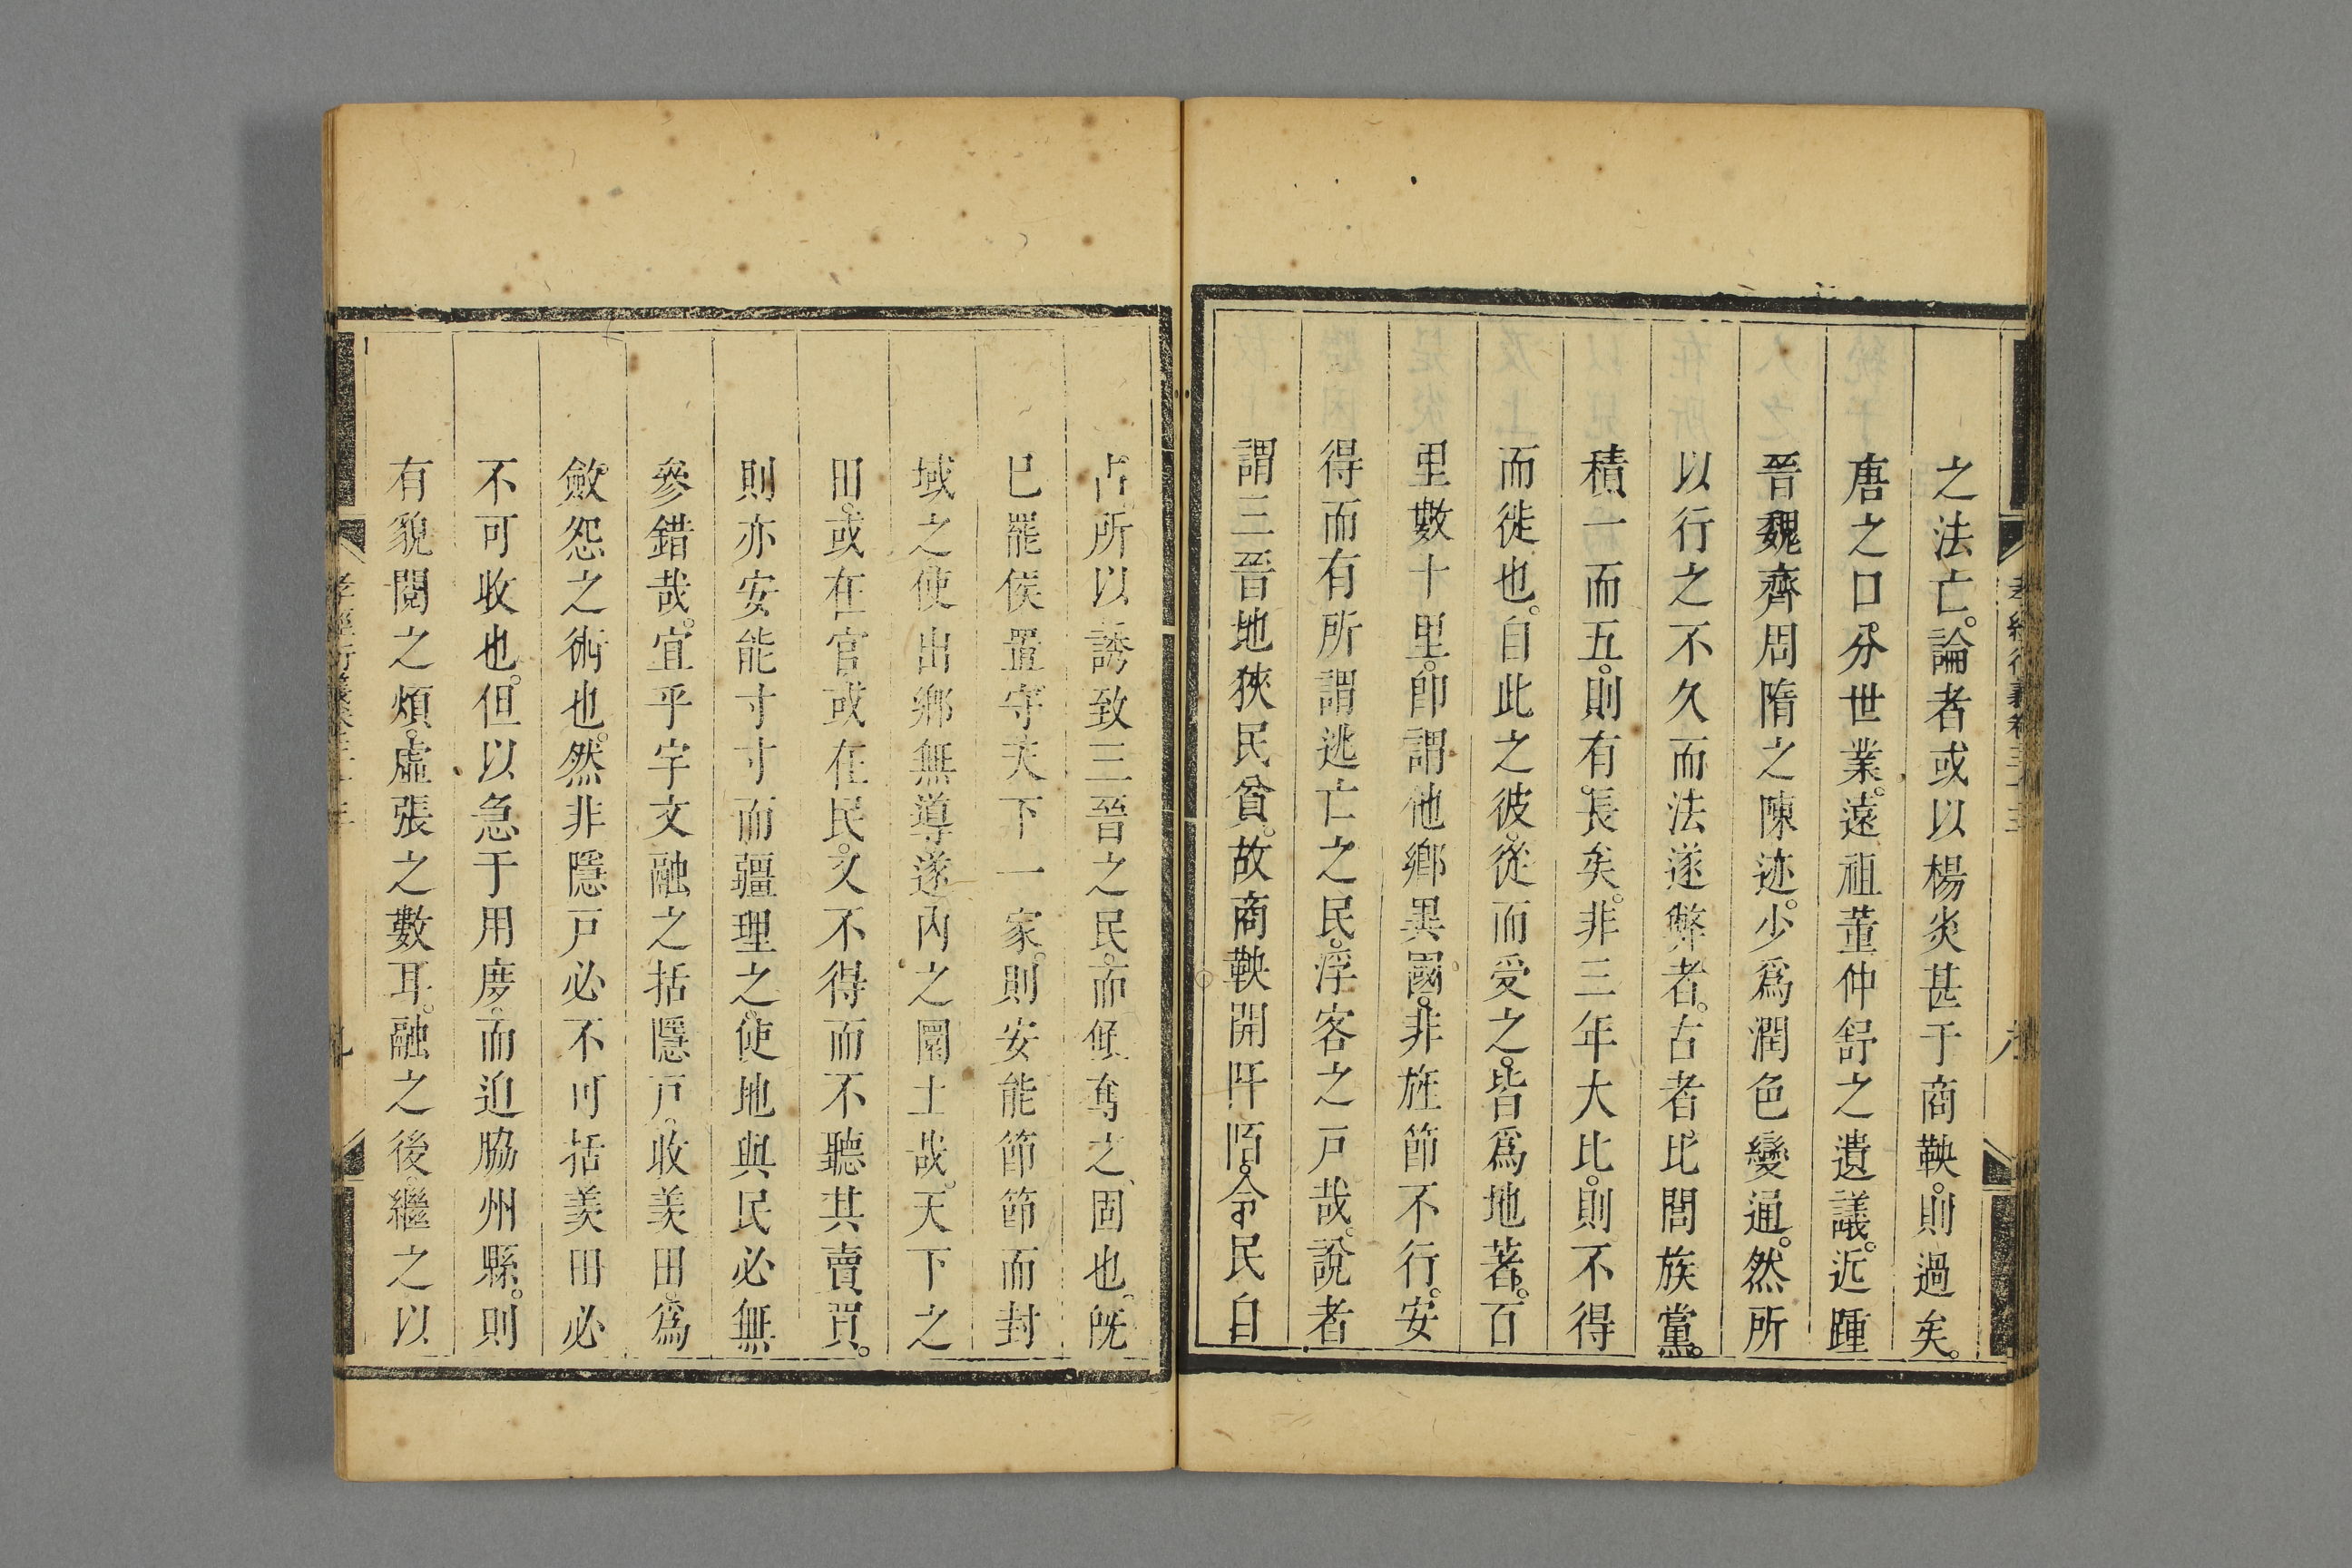 之法亡。論者或以楊炎甚于商鞅。則過矣。
唐之口分世業。遠祖董仲舒之遺議。近踵
晉魏齊周隋之陳迹。少爲潤色變通。然所
以行之不久而法遂弊者。古者比閭族黨。
積一而五。則有長矣。非三年大比。則不得
而徙也。自此之彼。從而受之。皆爲地著。百
里數十里。卽謂他鄉異國。非旌節不行。安
得而有所謂逃亡之民。浮客之戸哉。說者
謂三晉地狹民貧。故商鞅開阡陌。令民自
占。所以誘致三晉之民。而傾奪之、固也。旣
已罷侯置守。天下一家。則安能節節而封
域之。使出鄉無導。遂內之圜土哉。天下之
田。或在官或在民。又不得而不聽其賣買。
則亦安能寸寸而疆理之。使地與民必無
參錯哉。宜乎宇文融之括隱戸。收羨田。爲
斂怨之術也。然非隱戸必不可括羨田必
不可收也。但以急于用度。而迫脇州縣。則
有貌閱之煩。虛張之數耳。融之後。繼之以